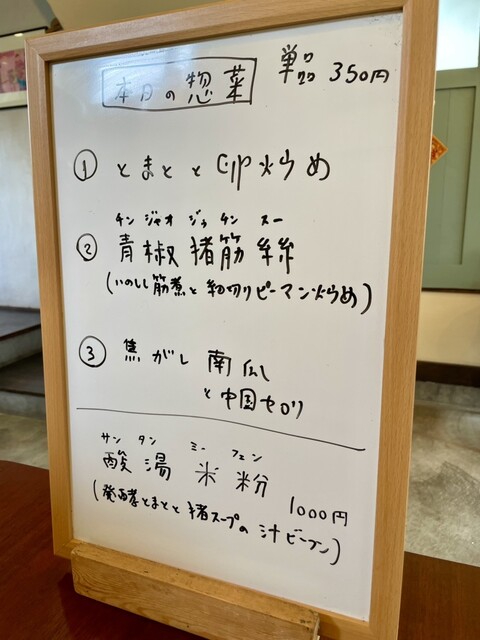 本日の惣菜
単品 350円
① とまとと卵炒め
チン ジャオ ジゥ タン スー
② 青椒猪筋絲
(いのしし筋煮と細切りピーマン炒め)
③ 焦がし南瓜
と中国セロリ
サン タン ミー フェン
酸湯米粉
1000円
(発酵とまとと猪スープの汁ビーフン)